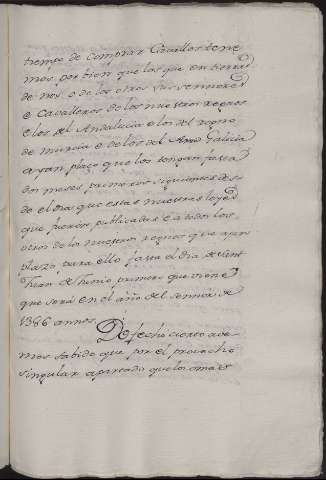 tiempo de comprar Cavallos tene
mos por bien que los que en tierra
de nos, o de los otros sus sennores
e Cavalleros de los nuestros regnos
e los del Andalucia e los del regno
de murcia e de los del Regno Galicia
ayan plazo que los tengan fasta
dos meses primeros siguientes des
de el dia que estas nuestras leyes
que fueron publicadas e a todos los
otros de los nuestros regnos que ayan
plazo para ello fasta el dia de Sant
Juan de Junio primero que viene
que será en el año del sennor de
1386 annos.
De fecho cierto ave
mos sabido que por el provecho
singular apartado que los omes